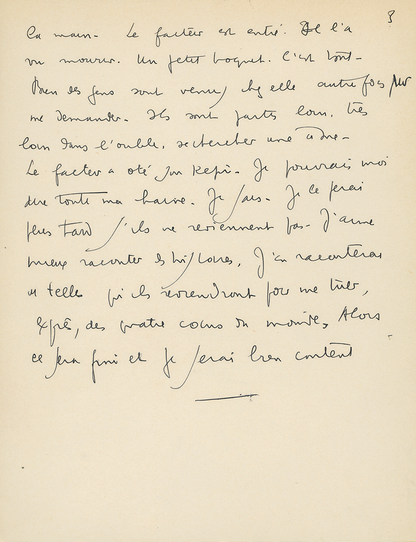 3
la main. Le facteur est entré. Il l'a
vu mourir. Un petit hoquet. C'est tout.
Bien des gens sont venus chez elle autrefois pour
me demander. Ils sont partis loin, très
loin dans l'oubli, rechercher une
Le facteur a oté son Kepi. Je pourrais moi
dire toute ma haine. Je sais. Je le ferai
plus tard s'ils ne reviennent pas. J'aime
mieux raconter des histoires. J'en raconterai
de telles qu'ils reviendront pour me tuer,
exprès, des quatre coins du monde. Alors
ce sera fini et je serai bien content